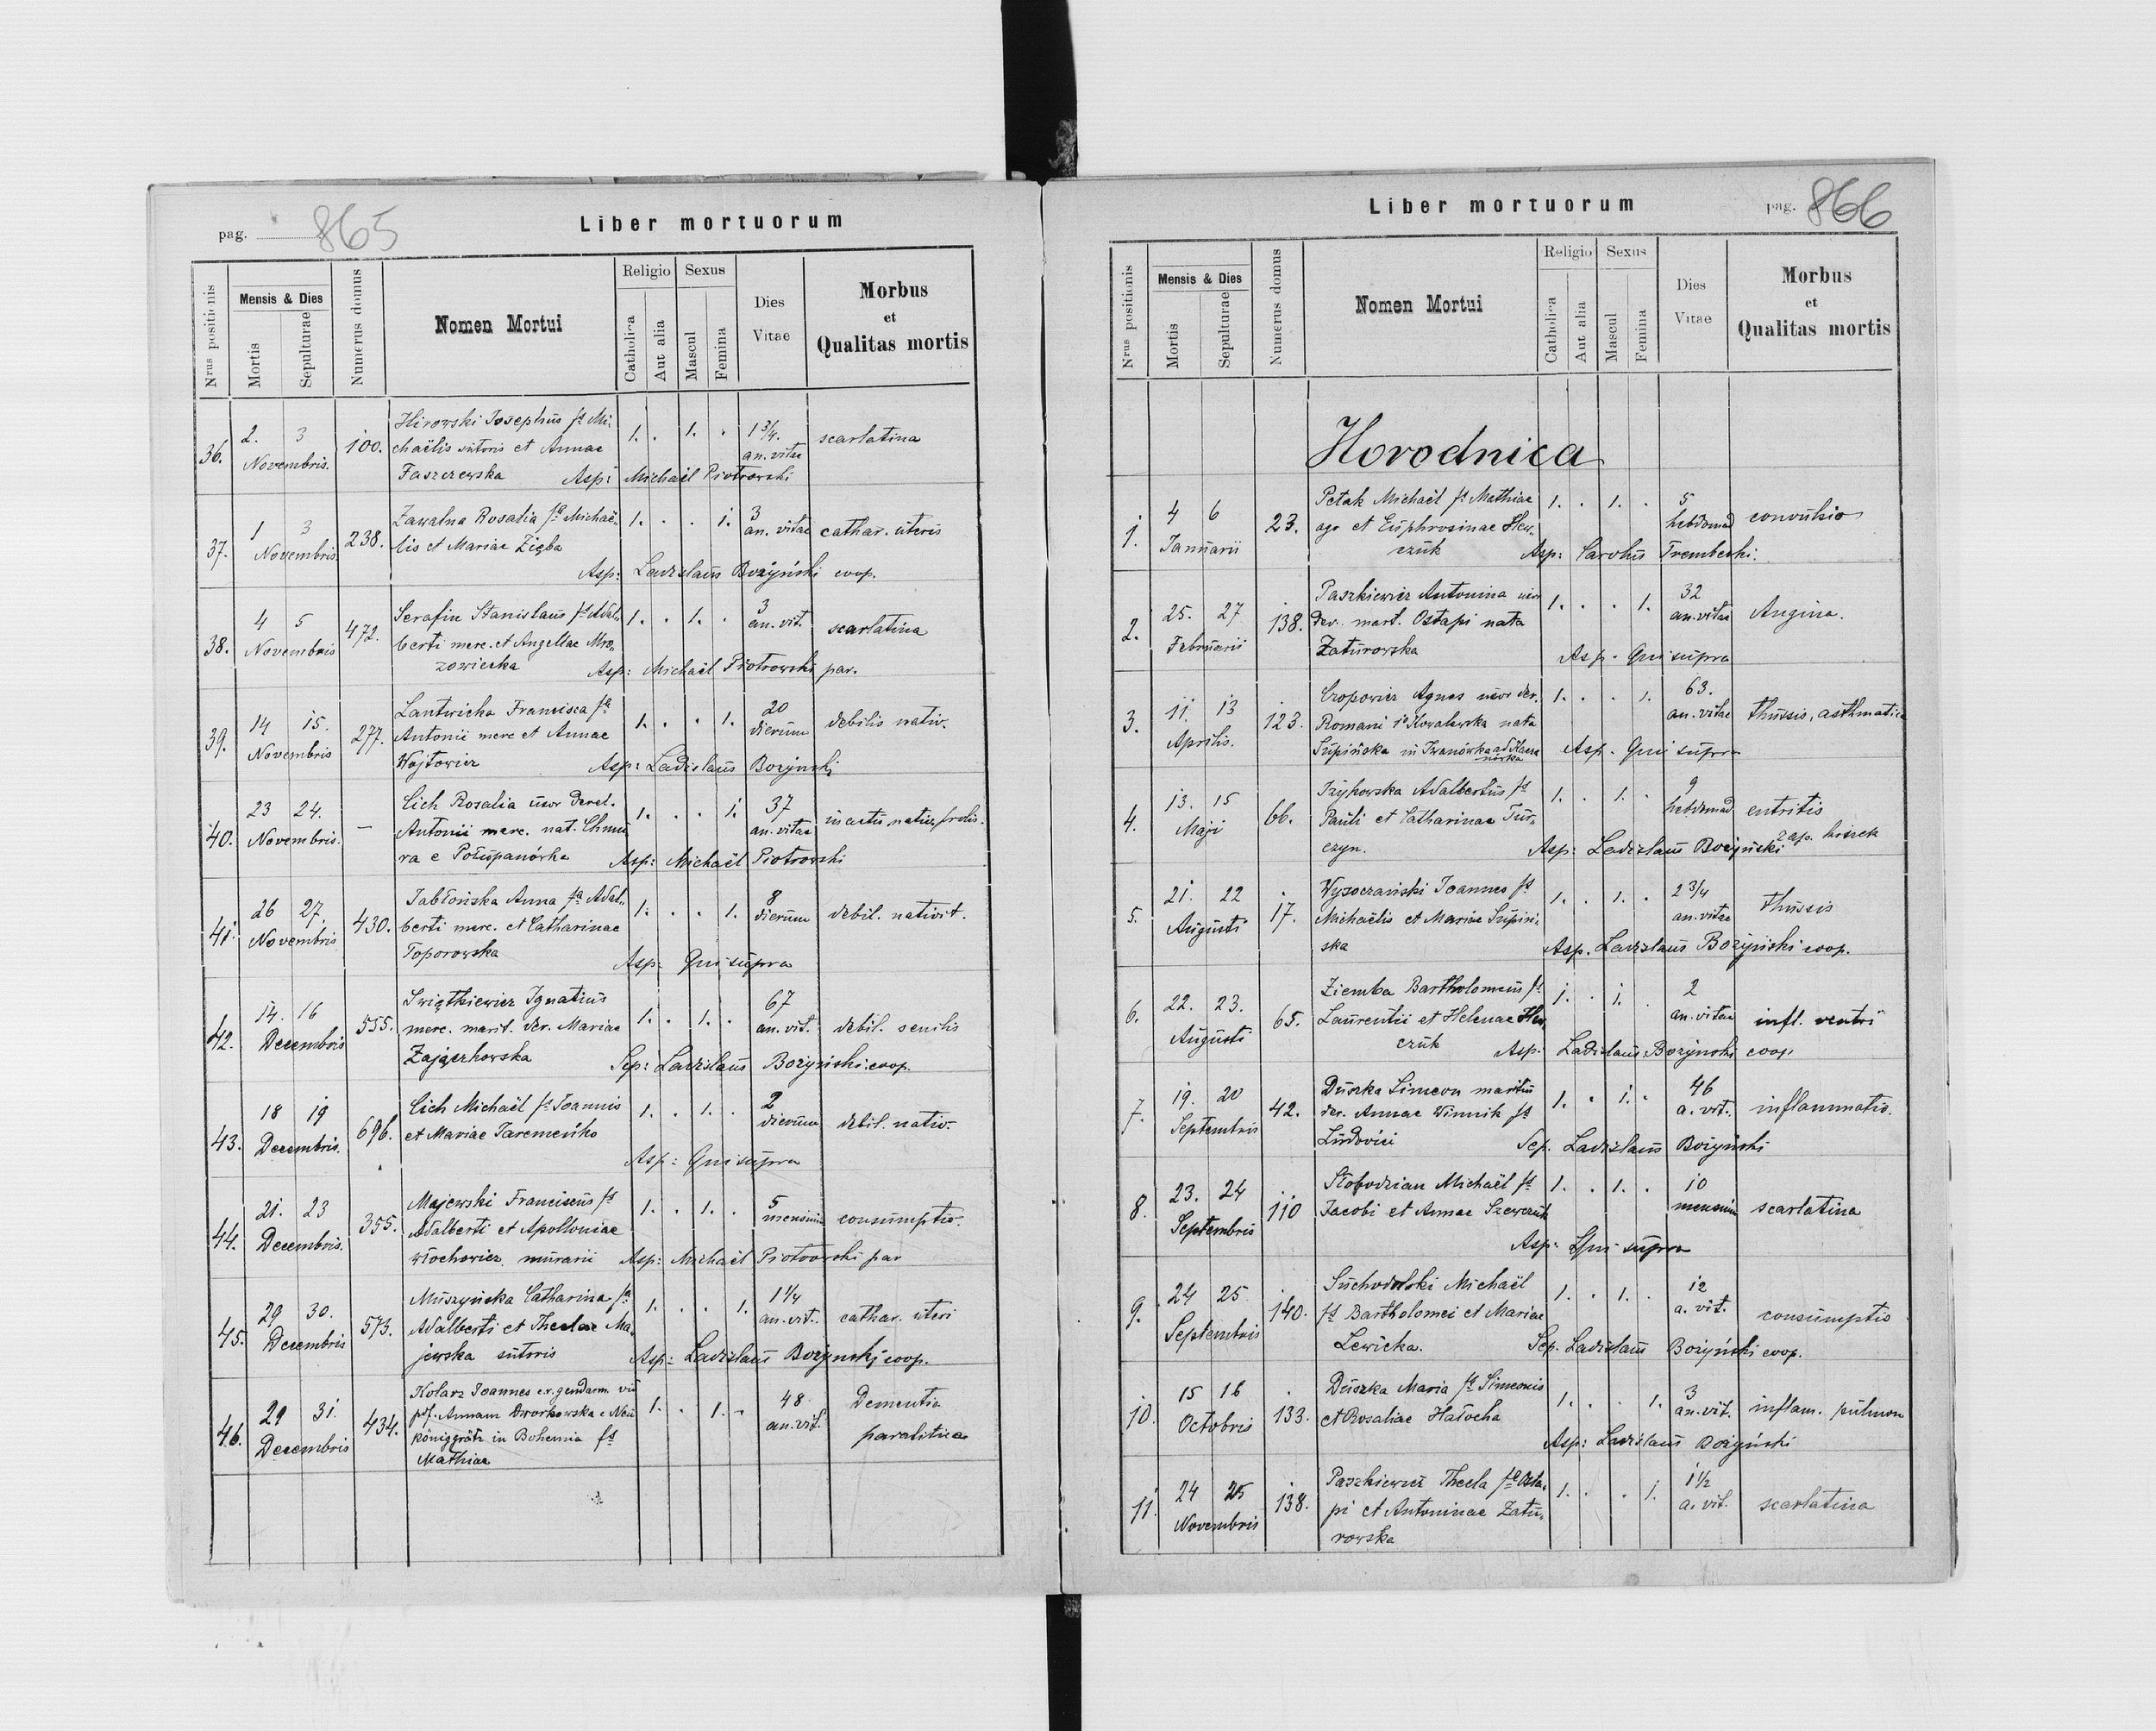 pag. 865
Liber mortuorum
Nrus positionis
Mensis & Dies
Mortis
Sepulturae
Numerus domus
Nomen Mortui
Religio
Catholica
Aut alia
Sexus
Mascul
Femina
Dies Vitae
Morbus
et
Qualitas mortis
36. 2. 3 Novembris. 100. Hirowski Josephus fs Mi-
chaëlis sutoris et Annae
Faszczewska
1. . 1. . 1 3/4. an. vitae scarlatina
Asp: Michaël Piotrowski
37. 1 3 Novembris 238. Zawalna Rosalia fa Michaë-
lis et Mariae Zięba
1. . . 1. 3 an. vitae cathar. uteris
Asp: Ladislaus Bożyński coop.
38. 4 5 Novembris 472. Serafin Stanislaus fs Adal-
berti merc. et Angellae Mro-
zowicka
1. . 1. . 3 an. vit. scarlatina
Asp: Michaël Piotrowski par.
39. 14 15. Novembris 277. Lantwicka Francisca fa
Antonii merc et Annae
Wojtowicz
1. . . 1. 20 dierum debilis nativ.
Asp: Ladislaus Bozynski
40. 23 24. Novembris. — Cich Rosalia uxor derel.
Antonii merc. nat. Chmu
ra e Połupanówka
1. . . 1. 37 an. vitae in actu nativ. prolis.
Asp: Michaël Piotrowski
41. 26 27. Novembris 430. Jabłońska Anna fa Adal-
berti merc. et Catharinae
Toporowska
1. . . 1. 8 dierum debil. nativit.
Asp: Qui supra
42. 14. 16 Decembris 555. Swiątkiewicz Ignatius
merc. marit. der. Mariae
Zajączkowska
1. . 1. . 67 an. vit. debil. senilis
Sep: Ladislaus Bożyński coop.
43. 18 19 Decembris. 696. Cich Michaël fs Joannis
et Mariae Jaremeńko
1. . 1. . 2 dierum debil. nativ.
Asp: Qui supra
44. 21. 23 Decembris. 355. Majewski Franciscus fs
Adalberti et Apolloniae
Włochowicz murarii
1. . 1. . 5 mensium consumptio.
Asp: Michaël Piotrowski par
45. 29 30. Decembris 573. Muszyńska Catharina fa
Adalberti et Theclae Ma-
jewska sutoris
1. . . 1. 1 1/4 an. vit. cathar. uteri
Asp: Ladislaus Bozynski coop.
46. 29 31. Decembris 434. Kolarz Joannes c.r. gendarm.
Annam Dworkowska e Neu
königgrätz in Bohemia fs
Mathiae
1. . 1. . 48 an. vit. Dementia
paralitica
pag. 866
Liber mortuorum
Nrus positionis
Mensis & Dies
Mortis
Sepulturae
Numerus domus
Nomen Mortui
Religio
Catholica
Aut alia
Sexus
Mascul
Femina
Dies Vitae
Morbus
et
Qualitas mortis
Horodnica
1. 4 6 Januarii 23. Petak Michaël fs Mathiae
agr et Euphrosinae Hew-
czuk
1. . 1. . 5 hebdomad convulsio
Asp: Carolus Trembecki.
2. 25. 27 Februarii 138. Paszkiewicz Antonina uxor
der. mart. Ostapi nata
Zaturowska
1. . . 1. 32 an. vitae Angina.
Asp. Qui supra
3. 11. 13 Aprilis. 123. Cropowicz Agnes uxor der.
Romani 1o Kowalewska nata
Supińska in Iwanówka
1. . . 1. 63. an. vitae thussis, asthmatica
Asp. Qui supra
4. 13. 15 Maji 66. Iżykowska Adalbertus fs
Pauli et Catharinae Tur-
czyn.
1. . 1. . 9 hebdomad. entritis
Asp: Ladislaus Bożyński
5. 21. 22 Augusti 17. Wysoczański Joannes fs
Michaëlis et Mariae Supiń-
ska
1. . 1. . 2 3/4 an. vitae thussis
Asp. Ladislaus Bożyński coop.
6. 22. 23. Augusti 65. Ziemba Bartholomeus fs
Laurentii et Helenae Hew
czuk
1. . 1. . 2 an. vitae infl. ventri
Asp: Ladislaus Bozynski coop
7. 19. 20 Septembris 42. Duszka Simeon maritus
der. Annae Winnik fs
Ludovici
1. . 1. . 46 a. vit. inflammatio.
Sep. Ladislaus Bożyński
8. 23. 24 Septembris 110 Słobodzian Michaël fs
Jacobi et Annae Szewczuk
1. . 1. . 10 mensium scarlatina
Asp: Qui supra
9. 24 25 Septembris 140. Suchodolski Michaël
fs Bartholomei et Mariae
Lewicka.
1. . 1. . 12 a. vit. consumptio
Sep. Ladislaus Bożyński coop.
10. 15 16 Octobris 133. Duszka Maria fa Simeonis
et Rosaliae Hałocha
1. . . 1. 3 an. vit. inflam. pulmon
Asp: Ladislaus Bożyński
11. 24 25 Novembris 138. Paszkiewicz Thecla fa Osta-
pi et Antoninae Zatu-
rowska
1. . . 1. 1 1/2 a. vit. scarlatina